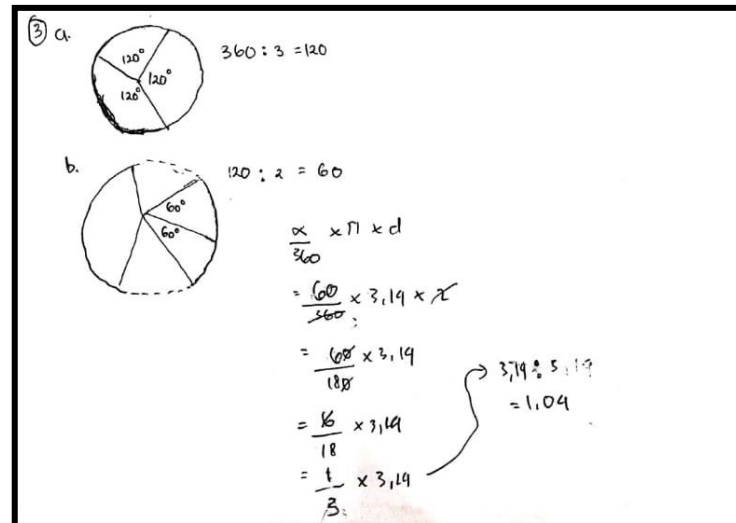 ③ a.
120°
120°
120°
360 : 3 = 120
b.
60°
60°
120 : 2 = 60
α/360 × π × d
= 60/360 × 3,14 × 2
= 60/180 × 3,14
= 6/18 × 3,14
= 1/3 × 3,14
= 1,04